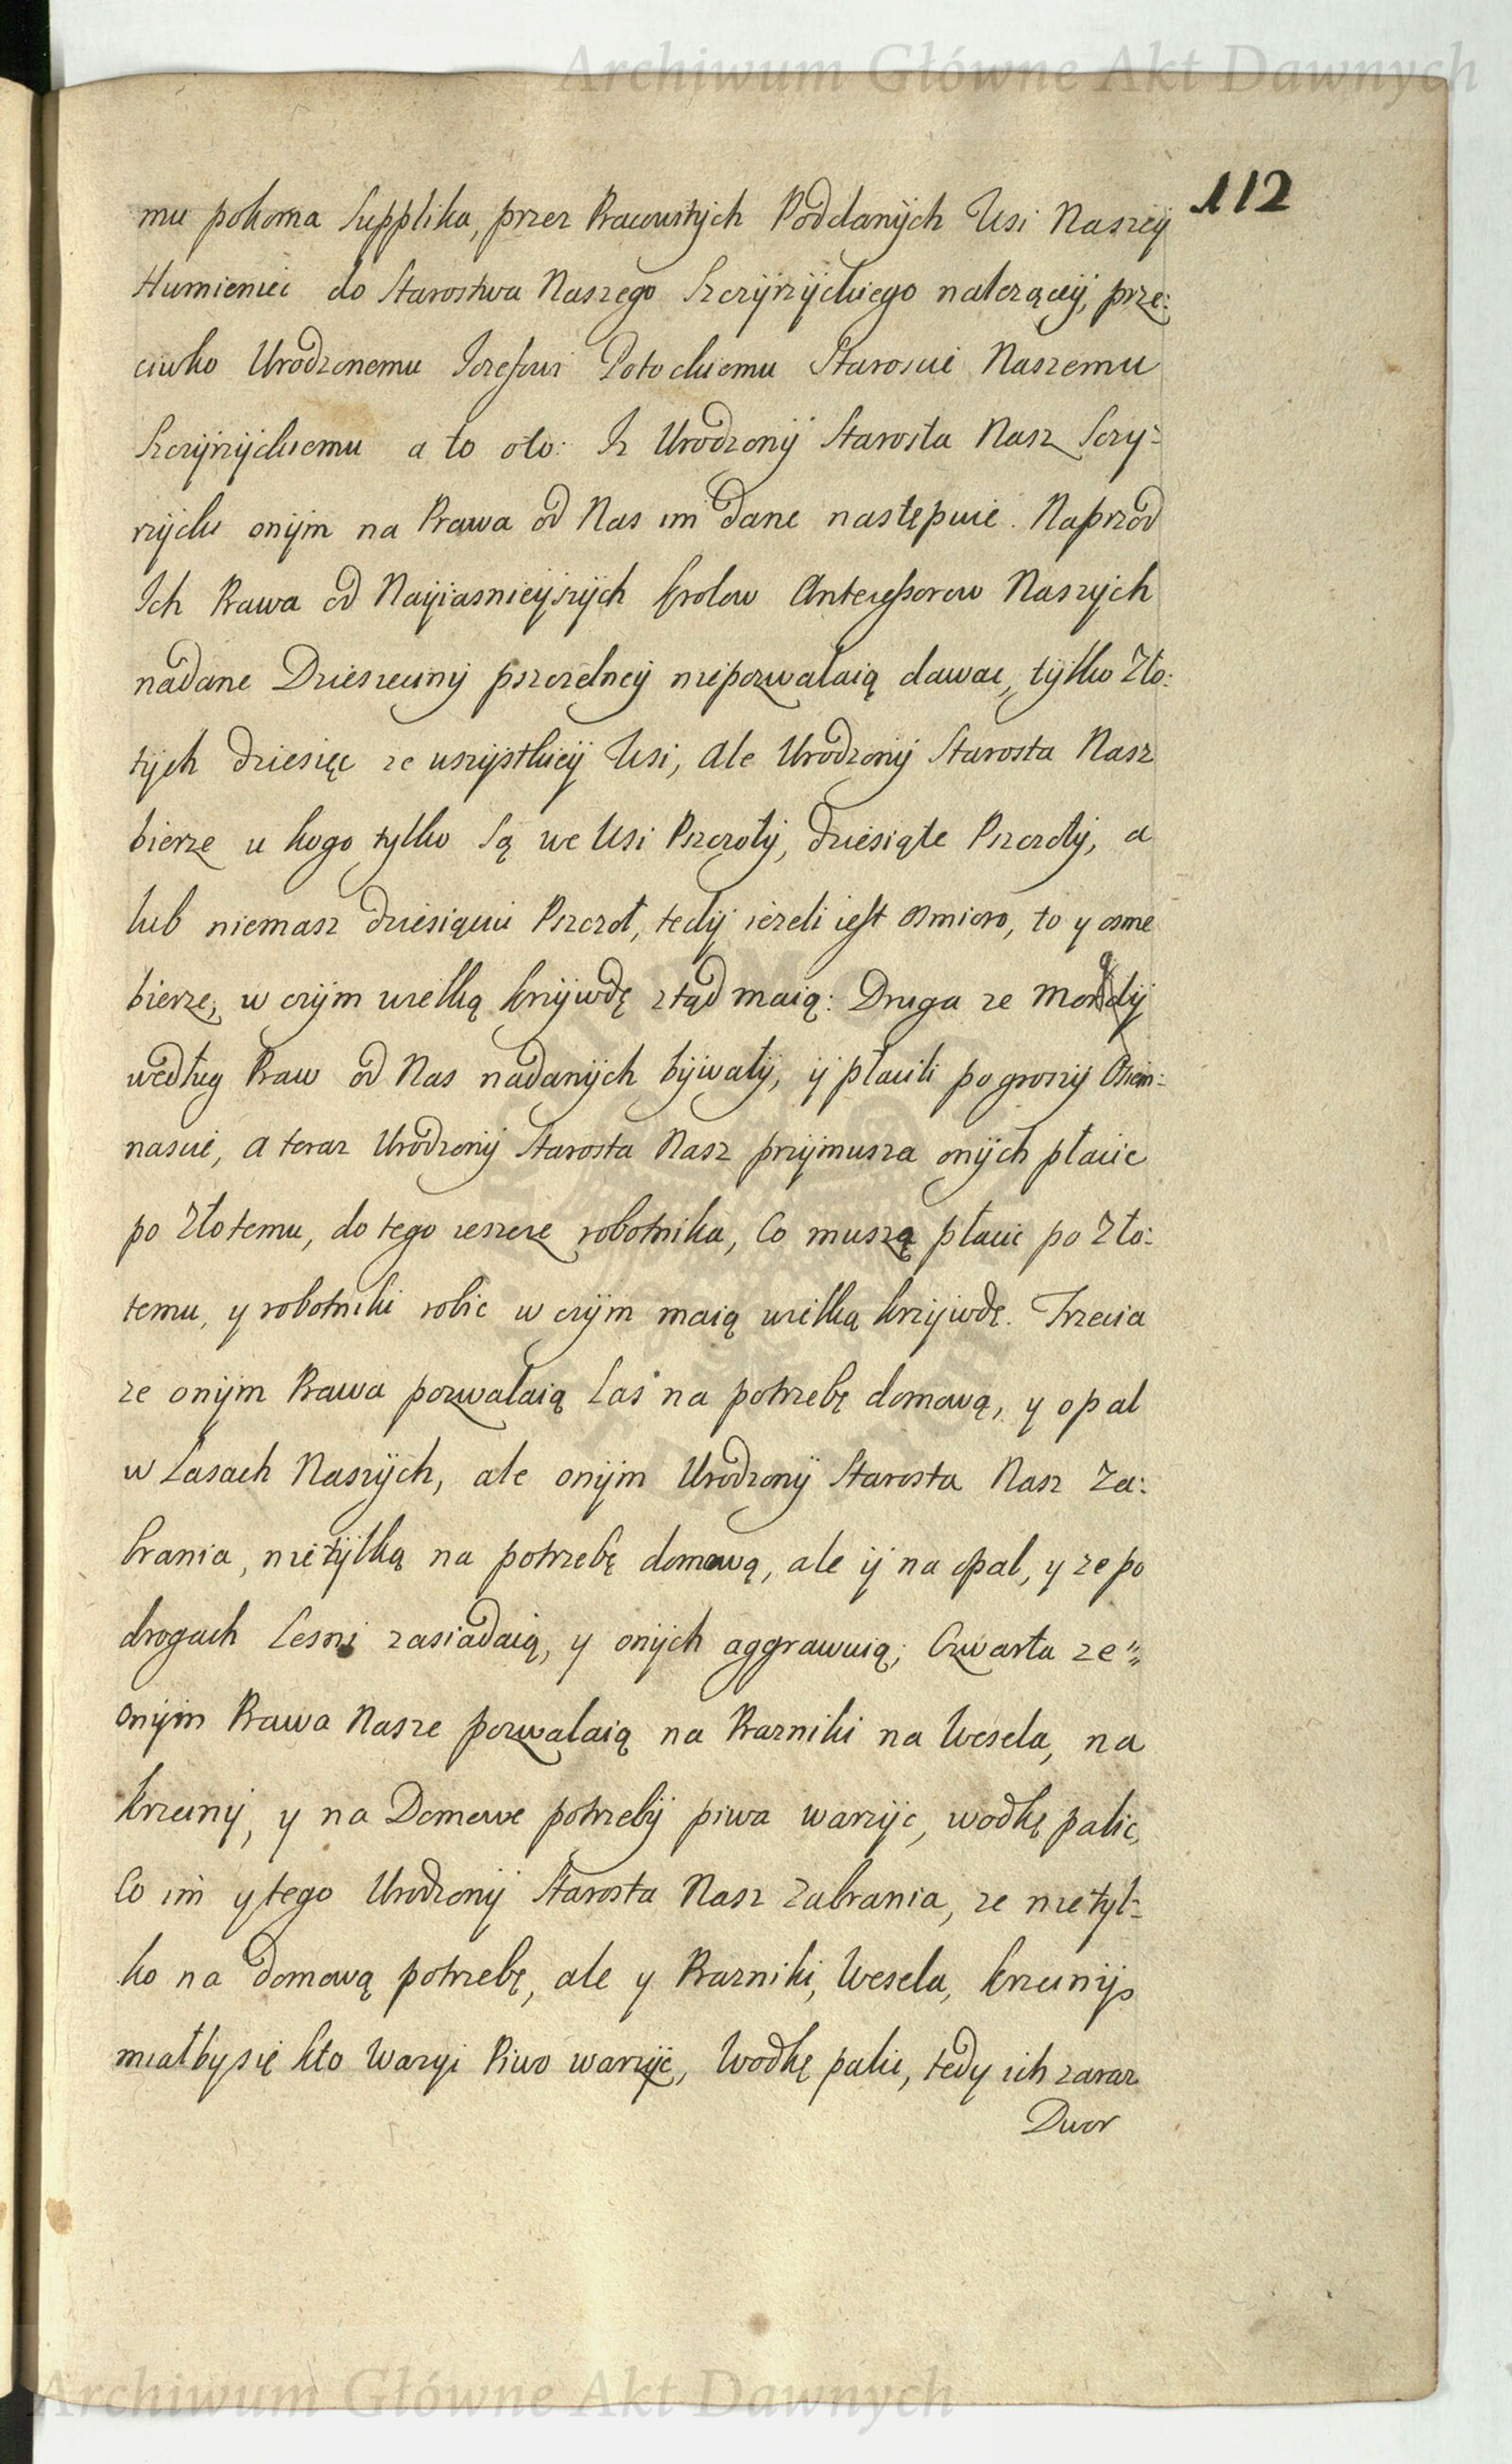 Archiwum Główne Akt Dawnych
112
mu pokorna Supplika, przez Pracowitych Poddanych Wsi Naszey
Humieniec do Starostwa Naszego Szczyrzyckiego należącey, prze:
ciwko Urodzonemu Jozefowi Potockiemu Staroscie Naszemu
Szczyrzyckiemu a to oto: Iz Urodzony Starosta Nasz Sczy:
rzycki onym na Prawa od Nas im dane następuie. Naprzod
Ich Prawa od Nayiasnieyszych Krolow Antecessorow Naszych
nadane Dziesieciny pszczelney niepozwalaią dawac, tylko Zło:
tych dziesięc ze wszystkiey Wsi, Ale Urodzony Starosta Nasz
bierze u kogo tylko Są we Wsi Pszczoły, dziesiąte Pszczoły, a
lub niemasz dziesiąci Pszczoł, tedy iezeli iest osmioro, to y osme
bierze, w czym wielką krzywdę ztąd maią: Druga ze
według Praw od Nas nadanych bywały, y płacili po groszy Osiem:
nascie, a teraz Urodzony Starosta Nasz przymusza onych płacic
po Złotemu, do tego ieszcze robotnika, Co muszą płacic po Zło:
temu, y robotniki robic w czym maią wielką krzywdę. Trzecia
ze onym Prawa pozwalaią Las na potrzebę domową, y opal
w Lasach Naszych, ale onym Urodzony Starosta Nasz Za:
brania, nietylką na potrzebę domową, ale y na opal, y ze po
drogach Lesni zasiadaią, y onych aggrawuią; Czwarta ze
onym Prawa Nasze pozwalaią na Prazniki na Wesela, na
krzciny, y na Domowe potrzeby piwa warzyc, wodkę palic,
Co im y tego Urodzony Starosta Nasz Zabrania, ze nietyl:
ko na domową potrzebę, ale y Prazniki, Wesela, krzciny,
miałby się kto Wazyi Piwo warzyc, Wodkę palic, tedy ich zaraz
Dwor
Archiwum Główne Akt Dawnych